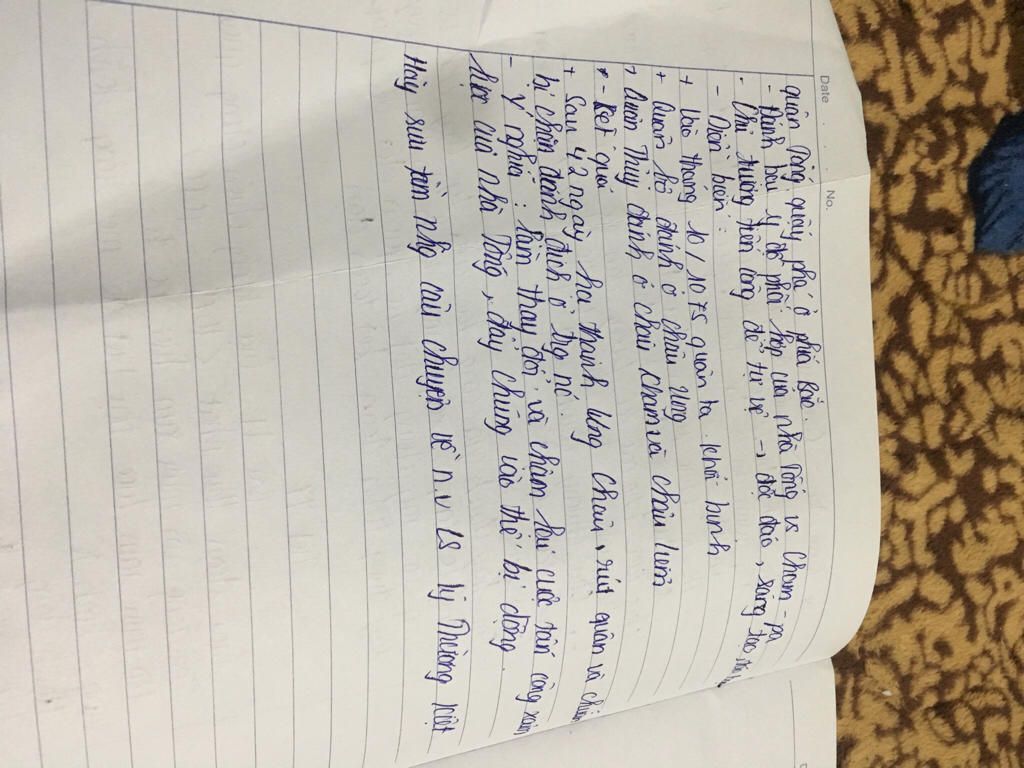 Date No.
quân Tống quấy phá ở phía Bắc.
- Đánh bại ý đồ phối hợp của nhà Tống vs Cham-pa
- Chủ trương tiến công để tự vệ → độc đáo, sáng tạo
- Diễn biến:
+ Vào tháng 10/1075 quân ta khởi binh
+ Quân bộ đánh ở châu Ung
+ Quân Thủy đánh ở châu Khâm và châu Liêm
* - Kết quả
+ Sau 42 ngày hạ thành Ung Châu, rút quân và
bị chặn đánh địch ở trg nc.
- Ý nghĩa: làm thay đổi và chậm lại cuộc tấn công xâm
lược của nhà Tống, đẩy chúng vào thế bị động.
Hãy sưu tầm những câu chuyện về n.v LS Lý Thường Kiệt